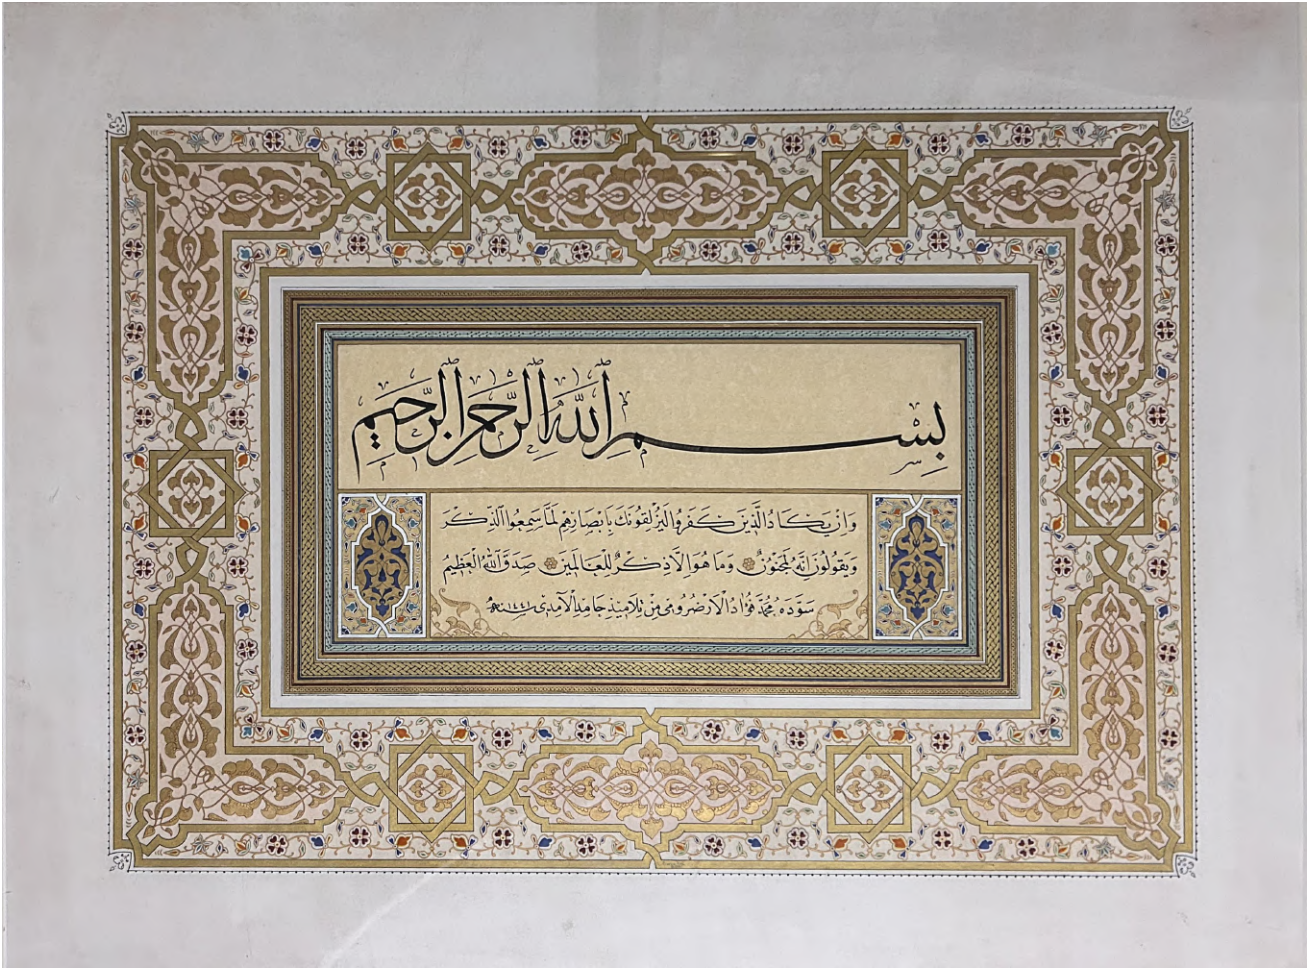 بِسْمِ اللَّهِ الرَّحْمٰنِ الرَّحِيمِ
وَاِنْ يَكَادُ الَّذِينَ كَفَرُوا لَيُزْلِقُونَكَ بِاَبْصَارِهِمْ لَمَّا سَمِعُوا الذِّكْرَ
وَيَقُولُونَ اِنَّهُ لَمَجْنُونٌ وَمَا هُوَ اِلَّا ذِكْرٌ لِلْعَالَمِينَ صَدَقَ اللَّهُ الْعَظِيمُ
سَوَّدَهُ مُحَمَّد فُؤَادُ الْاَرْضُرُومِى مِنْ تَلَامِيذِ حَامِدِ الْآمِدِى سنه ١٤٤١